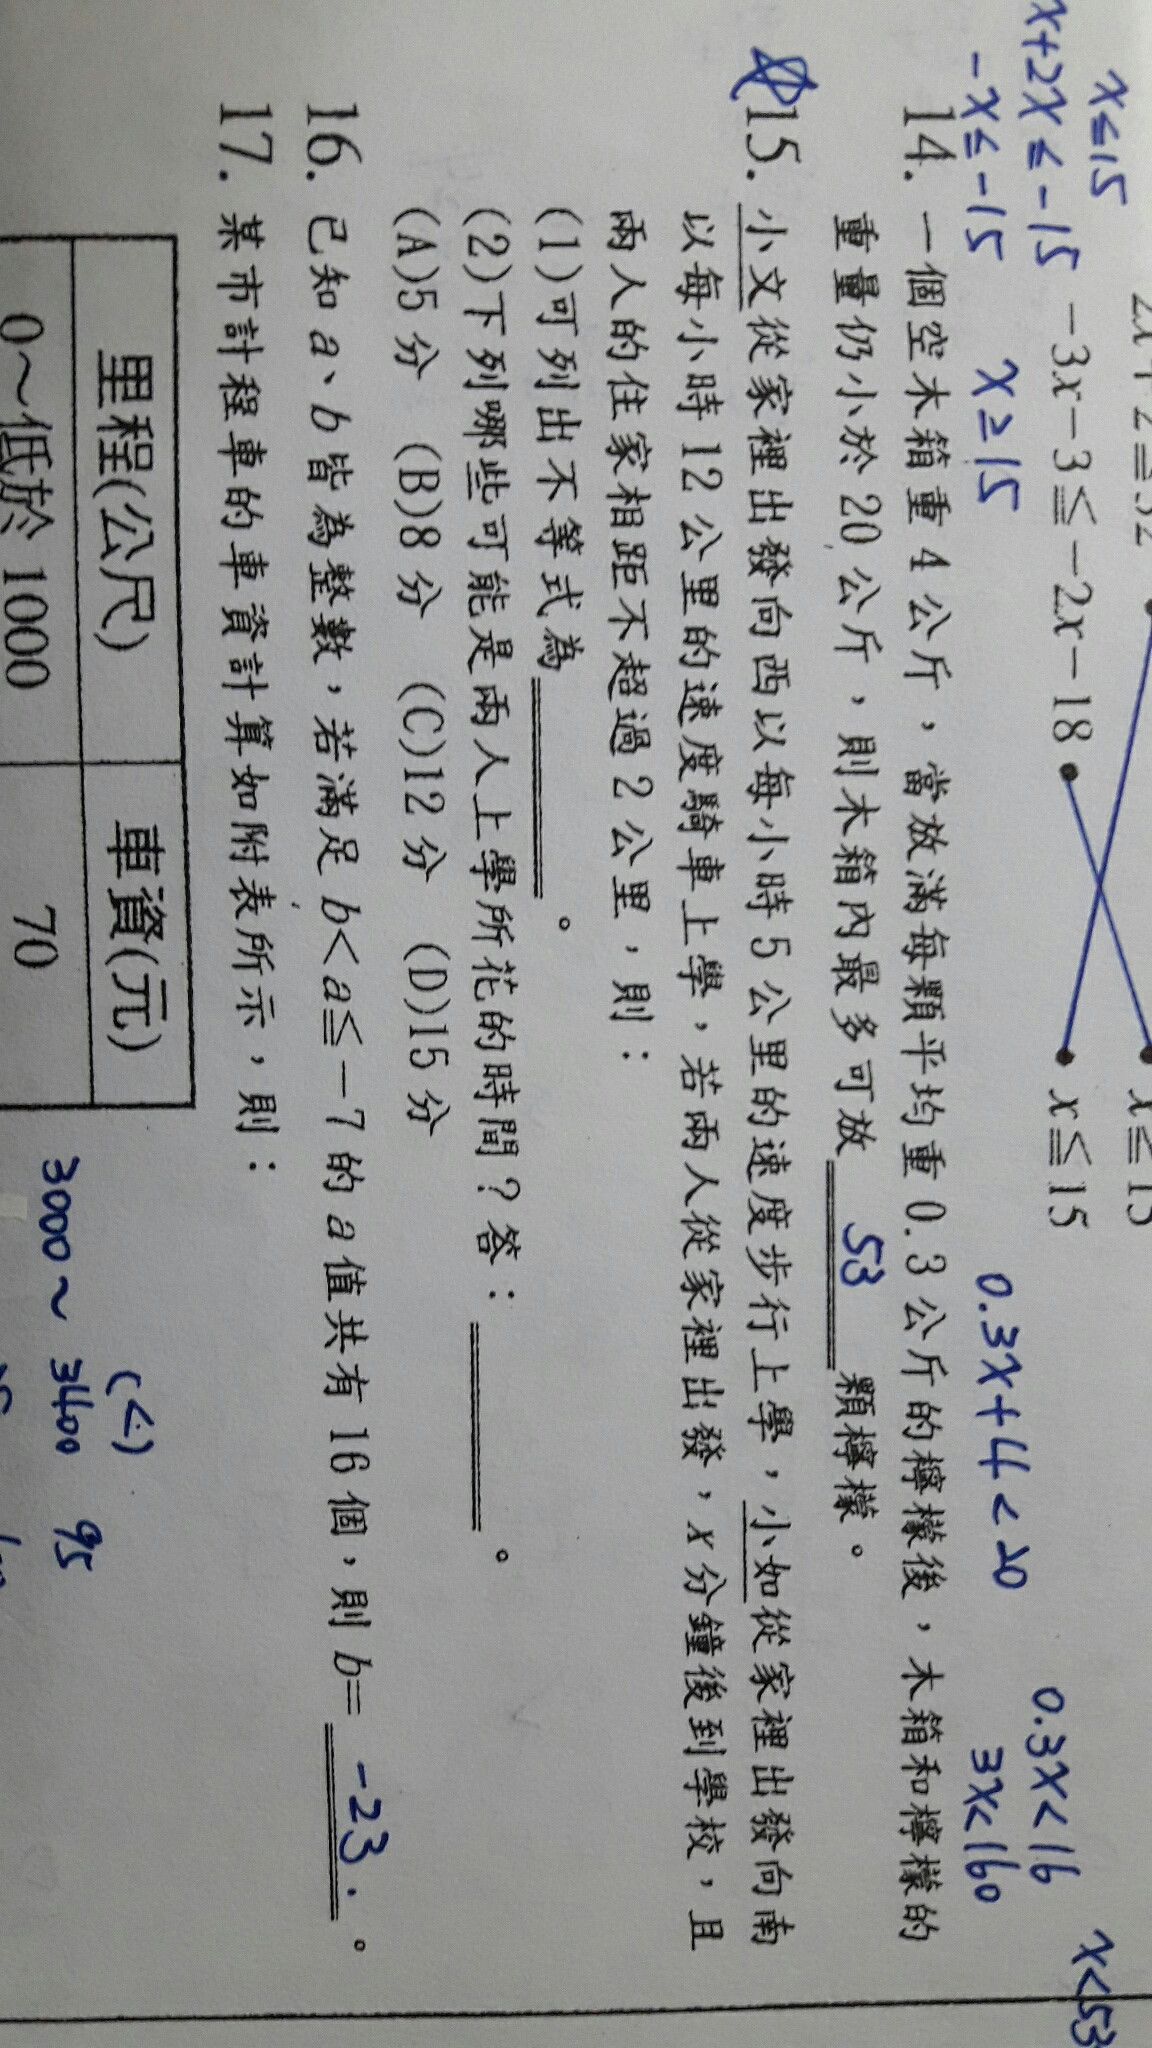 x≤15
x+2x≤-15
-x≤-15 x≥15
-3x-3≦-2x-18 x≦15
0.3x+4<20
0.3x<16
3x<160
x<53
14. 一個空木箱重 4 公斤，當放滿每顆平均重 0.3 公斤的檸檬後，木箱和檸檬的
重量仍小於 20 公斤，則木箱內最多可放 53 顆檸檬。
15. 小文從家裡出發向西以每小時 5 公里的速度步行上學，小如從家裡出發向南
以每小時 12 公里的速度騎車上學，若兩人從家裡出發，x 分鐘後到學校，且
兩人的住家相距不超過 2 公里，則：
(1)可列出不等式為 。
(2)下列哪些可能是兩人上學所花的時間？答： 。
(A)5 分 (B)8 分 (C)12 分 (D)15 分
16. 已知 a、b 皆為整數，若滿足 b<a≦-7 的 a 值共有 16 個，則 b= -23. 。
17. 某市計程車的車資計算如附表所示，則：
里程(公尺) 車資(元)
0～低於 1000 70
(<)
3000～3400 95